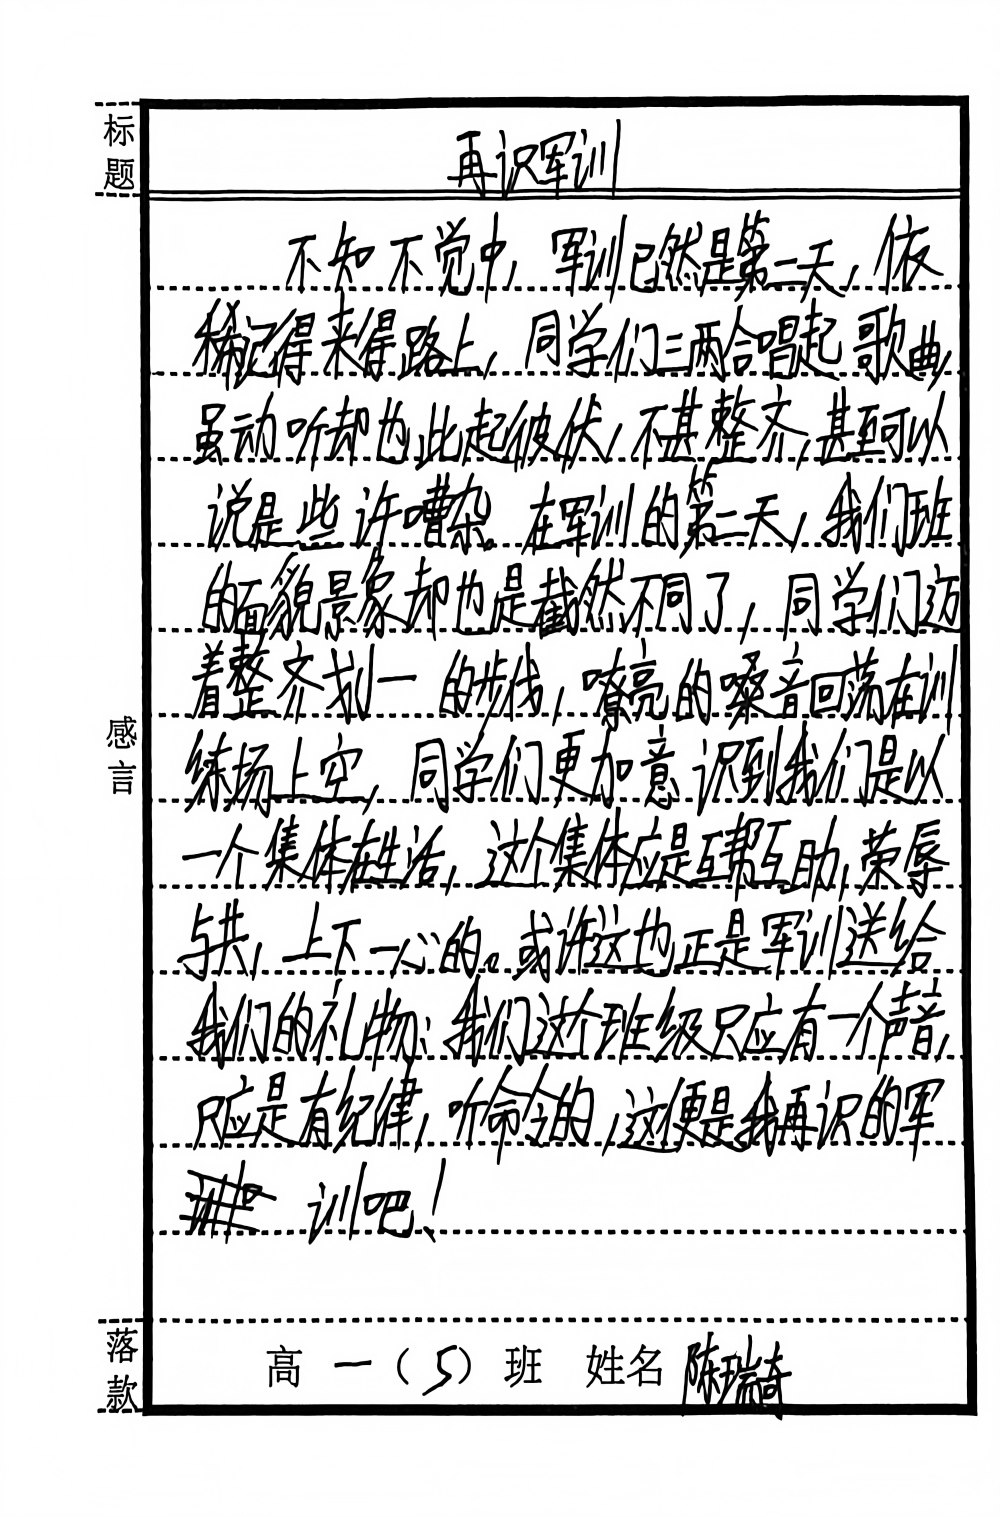 标题
再识军训
不知不觉中，军训已然是第二天，依
稀记得来得路上，同学们三两合唱起歌曲，
虽动听却也此起彼伏，不甚整齐，甚至可以
说是些许嘈杂。在军训的第二天，我们班
的面貌景象却也是截然不同了，同学们迈
着整齐划一的步伐，嘹亮的嗓音回荡在训
练场上空，同学们更加意识到我们是以
一个集体在生活，这个集体应是互帮互助，荣辱
与共，上下一心的。或许这也正是军训送给
我们的礼物：我们这个班级只应有一个声音，
只应是有纪律，听命令的，这便是我再识的军
训吧！
感言
落款
高一（5）班 姓名 陈瑞奇